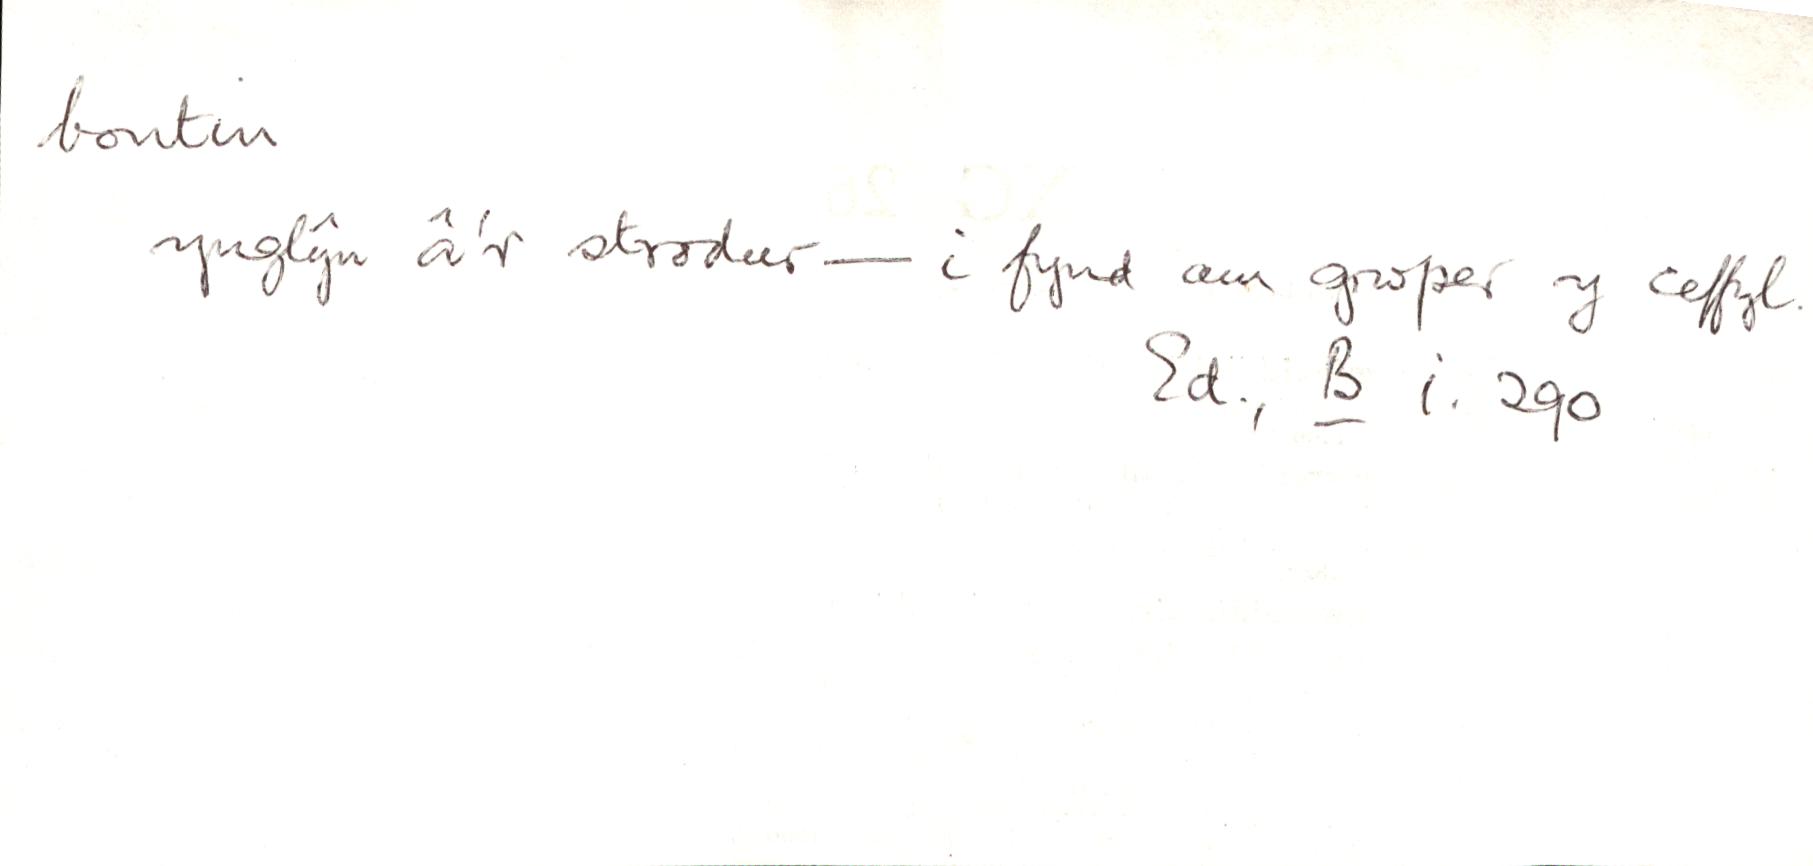 bontin
ynglŷn â'r strodur — i fynd am grwper y ceffyl.
Ed., B i. 290